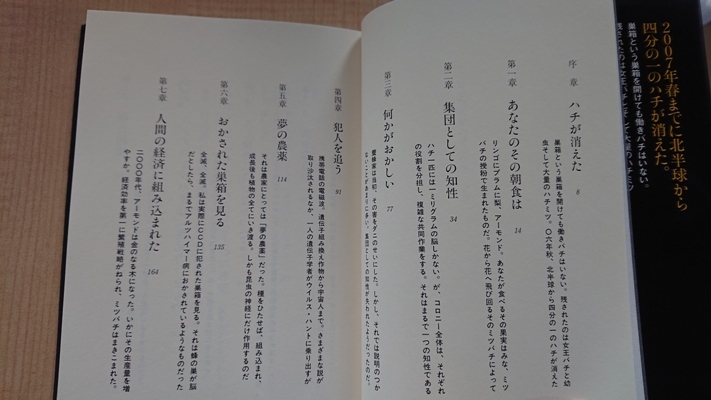 2007年春までに北半球から
四分の一のハチが消えた。
巣箱という巣箱を開けても働きバチはいない。
残されたのは女王バチと
序章 ハチが消えた 8
巣箱という巣箱を開けても働きバチはいない。残されたのは女王バチと幼
虫そして大量のハチミツ。〇六年秋、北半球から四分の一のハチが消えた
第一章 あなたのその朝食は 14
リンゴにプラムに梨、アーモンド。あなたが食べるその果実はみな、ミツ
バチの授粉で生まれたものだ。花から花へ飛び回るそのミツバチによって
第二章 集団としての知性 34
ハチ一匹には一ミリグラムの脳しかない。が、コロニー全体は、それぞれ
の役割を分担し、複雑な共同作業をする。それはまるで一つの知性である
第三章 何かがおかしい 77
養蜂家は当初、その害をダニのせいにした。しかし、それでは説明のつか
ないことがあまりに多い。集団としての知性が失われたようだったのだ。
第四章 犯人を追う 91
携帯電話の電磁波。遺伝子組み換え作物から宇宙人まで。さまざまな説が
取り沙汰されるなか、一人の遺伝子学者がウイルス・ハントに乗り出すが
第五章 夢の農薬 114
それは農家にとっては「夢の農薬」だった。種をひたせば、組み込まれ、
成長後も植物の全てにいき渡る。しかも昆虫の神経にだけ作用するのだ
第六章 おかされた巣箱を見る 135
全滅、全滅。私は実際にCCDに犯された巣箱を見る。それは蜂の巣が脳
だとしたら、まるでアルツハイマー病におかされているようなものだった
第七章 人間の経済に組み込まれた 164
二〇〇〇年代、アーモンドは金のなる木になった。いかにその生産量を増
やすか。経済効率を第一に繁殖戦略がねられ、ミツバチはまきこまれた。